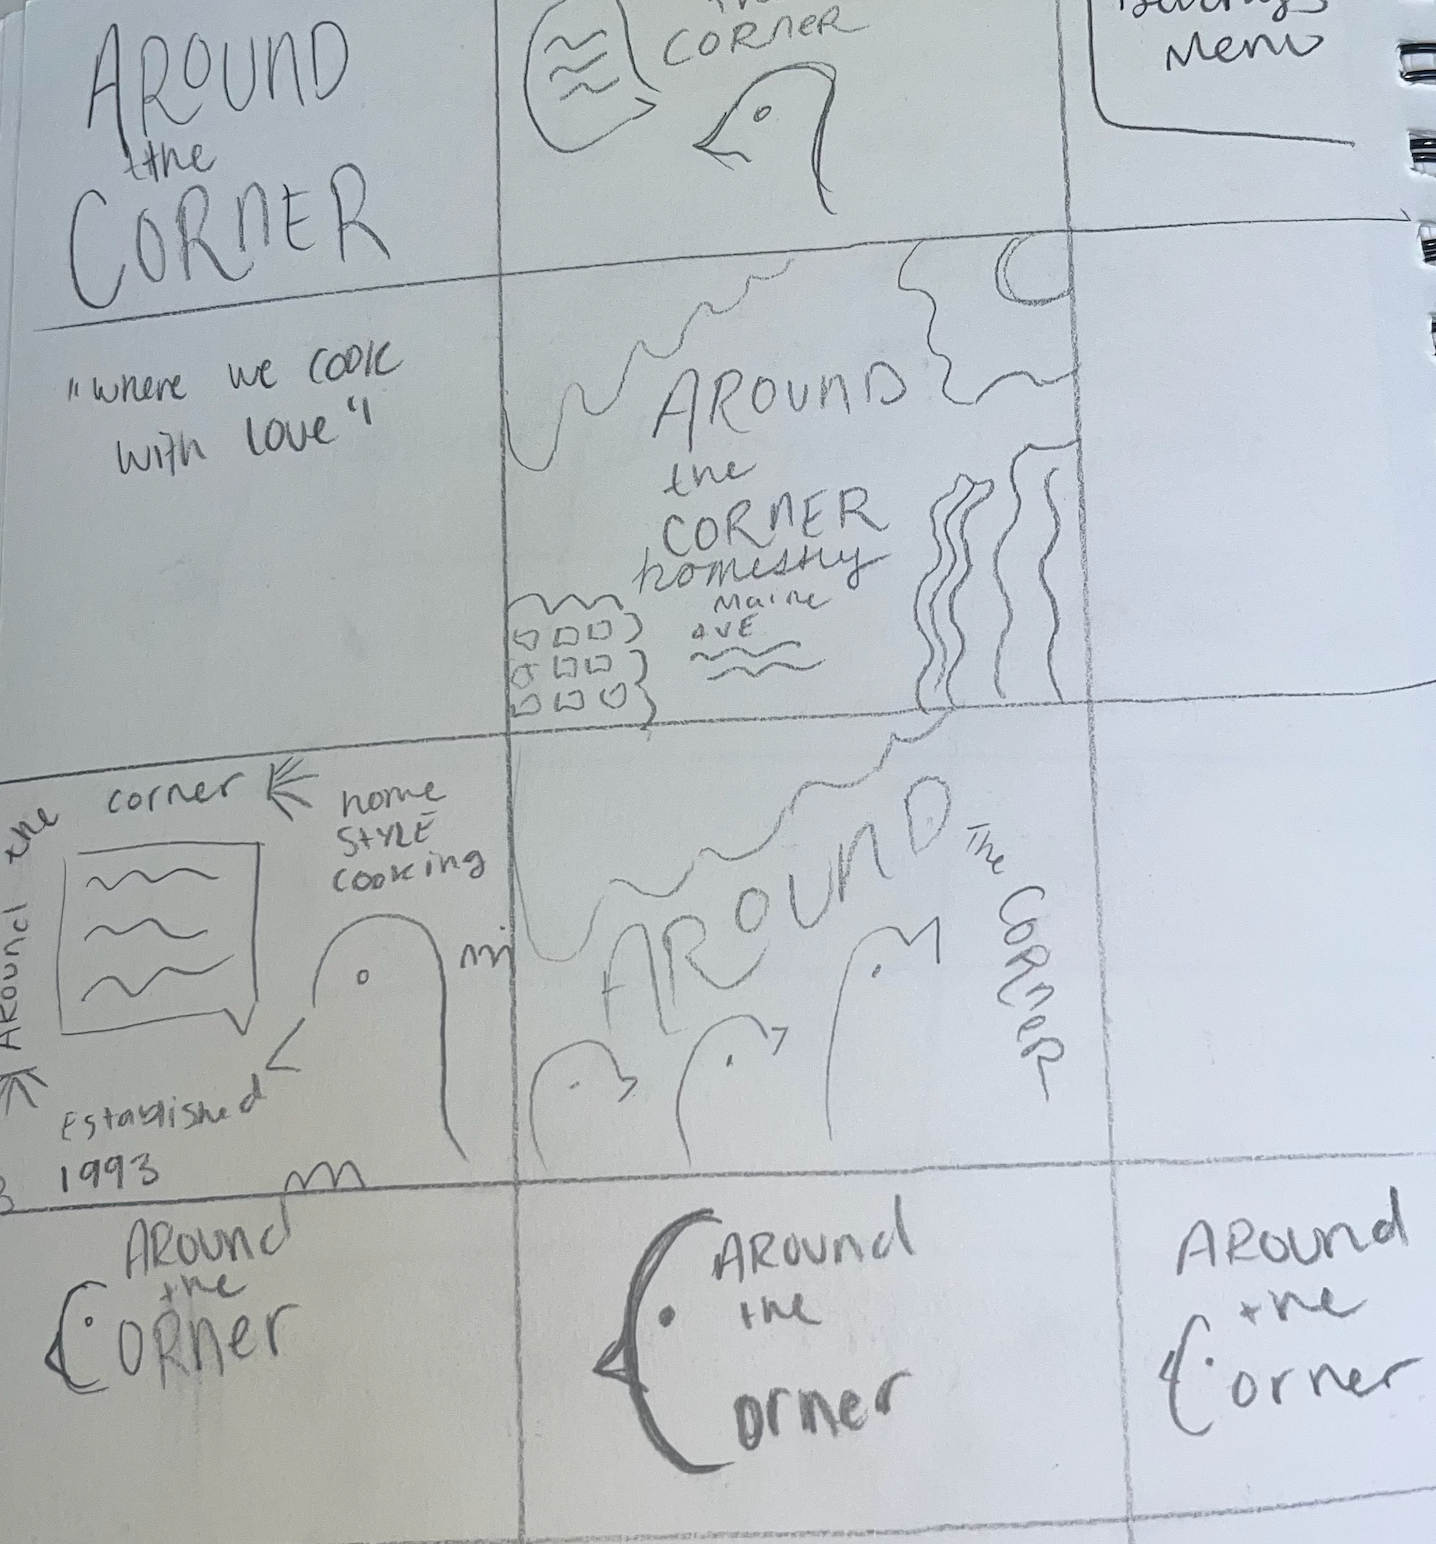 AROUND
the
CORNER
CORNER
Menu
"where we cook
with love"
AROUND
the
CORNER
Maine
AVE
Around the corner
home
STYLE
cooking
Established
1993
AROUND
The CORneR
AROund
the
CORner
AROund
the
Corner
AROund
the
Corner